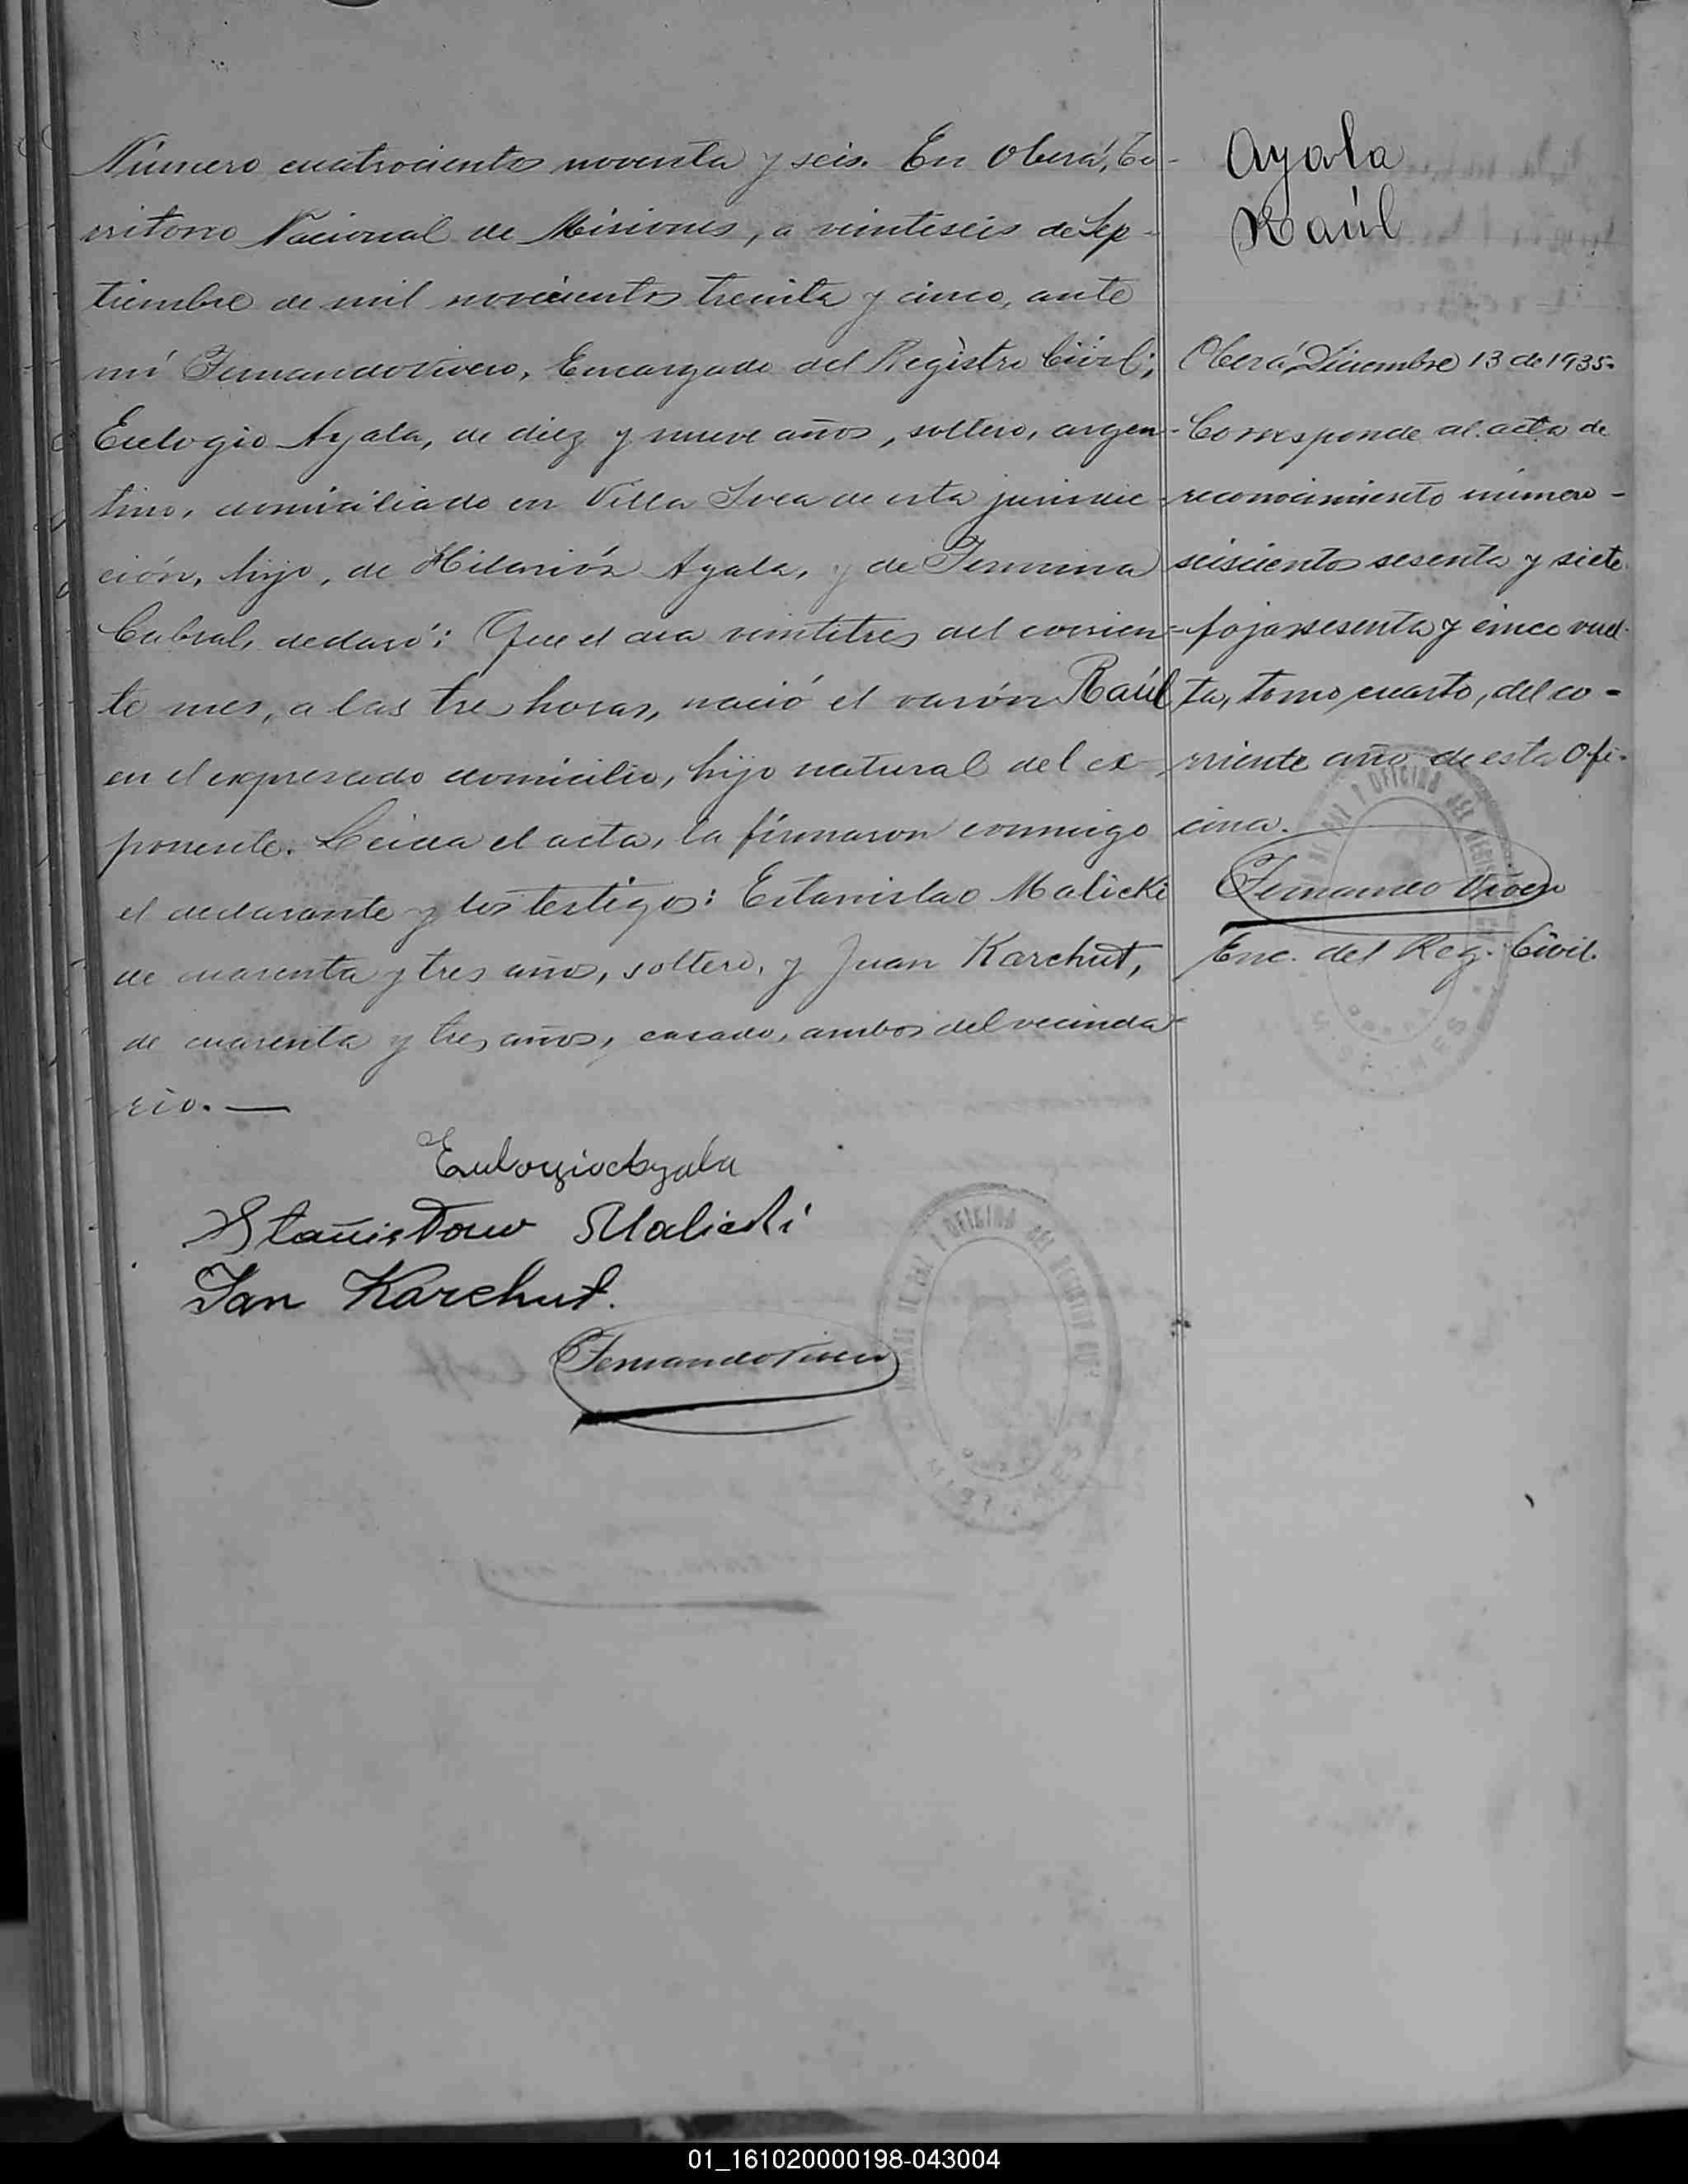 Número cuatrocientos noventa y seis. En Oberá, Te-
rritorio Nacional de Misiones, a veintiseis de Sep-
tiembre de mil novecientos treinta y cinco, ante
mí Fernando Vivero, Encargado del Registro Civil;
Eulogio Ayala, de diez y nueve años, soltero, argen-
tino, domiciliado en Villa Svea de esta jurisdic-
ción, hijo, de Hilarión Ayala, y de Fermina
Cabral, declaró: Que el día veintitres del corrien-
te mes, a las tres horas, nació el varón Raúl
en el expresado domicilio, hijo natural del ex-
ponente. Leída el acta, la firmaron conmigo
el declarante y los testigos: Estanislao Malicki
de cuarenta y tres años, soltero, y Juan Karchut,
de cuarenta y tres años, casado, ambos del vecinda-
rio. —
Eulogio Ayala
Stanisław Malicki
Jan Karchut.
Fernando Vivero
Ayala
Raúl
Oberá, Diciembre 13 de 1935.
Corresponde al acta de
reconocimiento número -
seiscientos sesenta y siete
fojas sesenta y cinco vuel-
ta, tomo cuarto, del co-
rriente año de esta Ofi-
cina.
Fernando Vivero
Enc. del Reg. Civil.
OFICINA DEL REGISTRO
MISIONES
01_161020000198-043004